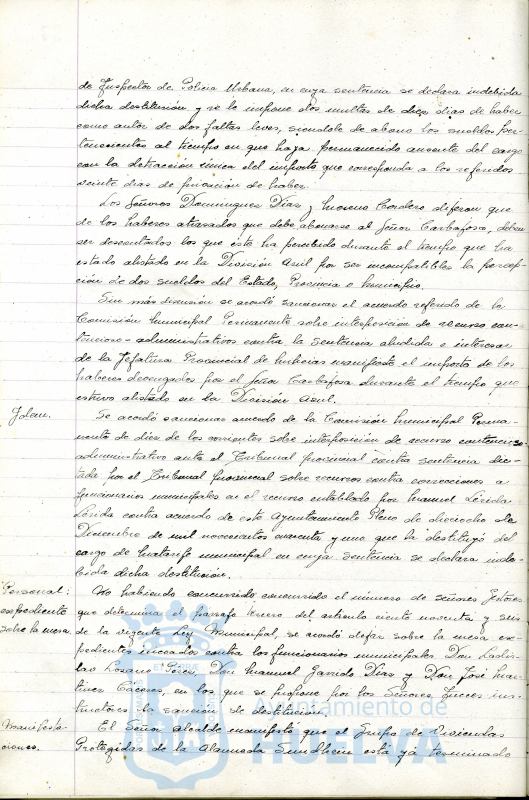 de Inspector de Policia Urbana, en cuya sentencia se declara indebida
dicha destitución y se le impone dos multas de diez dias de haber
como autor de dos faltas leves, siendole de abono los sueldos per-
tenecientes al tiempo en que haya permanecido ausente del cargo
con la detracción única del importe que corresponda a los referidos
veinte dias de privación de haber.
Los Señores Dominguez Dias y Moreno Cordero dijeron que
de los haberes atrasados que debe abonarse al Señor Carbajosa, deben
ser descontados los que éste ha percibido durante el tiempo que ha
estado alistado en la División Azul por ser incompatibles la percep-
ción de dos sueldos del Estado, Provincia o Municipio.
Sin más discusión se acordó sancionar el acuerdo referido de la
Comisión Municipal Permanente sobre interposición de recurso con-
tencioso-administrativo contra la sentencia aludida e interesar
de la Jefatura Provincial de Milicias manifieste el importe de los
haberes devengados por el Señor Carbajosa durante el tiempo que
estuvo alistado en la División Azul.
Idem.
Se acordó sancionar acuerdo de la Comisión Municipal Perma-
nente de diez de los corrientes sobre interposición de recurso contencioso-
administrativo ante el Tribunal Provincial contra sentencia dic-
tada por el Tribunal provincial sobre recursos contra correcciones a
funcionarios municipales en el recurso entablado por Manuel Lérida
Lérida contra acuerdo de este Ayuntamiento Pleno de dieciocho de
Diciembre de mil novecientos cuarenta y uno que la destituyó del
cargo de Matarife municipal en cuya sentencia se declara inde-
bida dicha destitución.
Personal:
expediente
sobre la mesa
No habiendo concurrido concurrido el número de señores Gestores
que determina el párrafo tercero del articulo ciento noventa y seis
de la vigente Ley Municipal, se acordó dejar sobre la mesa ex-
pedientes incoados contra los funcionarios municipales Don Ladis-
lao Lozano Pérez, Don Manuel Garrido Dias y Don José Mar-
tinez Cáceres, en los que se propone por los Señores Jueces ins-
tructores la sanción de destitución.
Manifesta
ciones.
El Señor Alcalde manifestó que el Grupo de Viviendas
Protegidas de la Alameda Sundheim está ya terminado
Ayuntamiento de
HUELVA